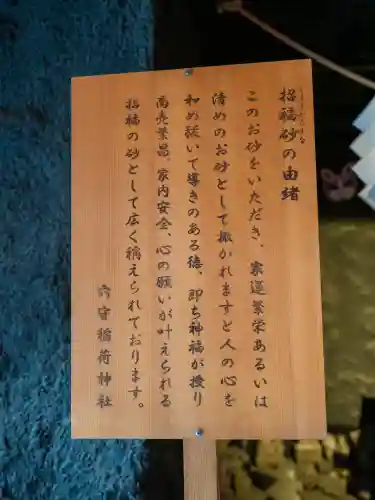 招福砂の由緒
このお砂をいただき、家運繁栄あるいは
清めのお砂として撒かれますと人の心を
和め猛いて導きのある徳、即ち神福が授り
商売繁昌、家内安全、心の願いが叶えられる
招福の砂として広く称えられております。
穴守稲荷神社